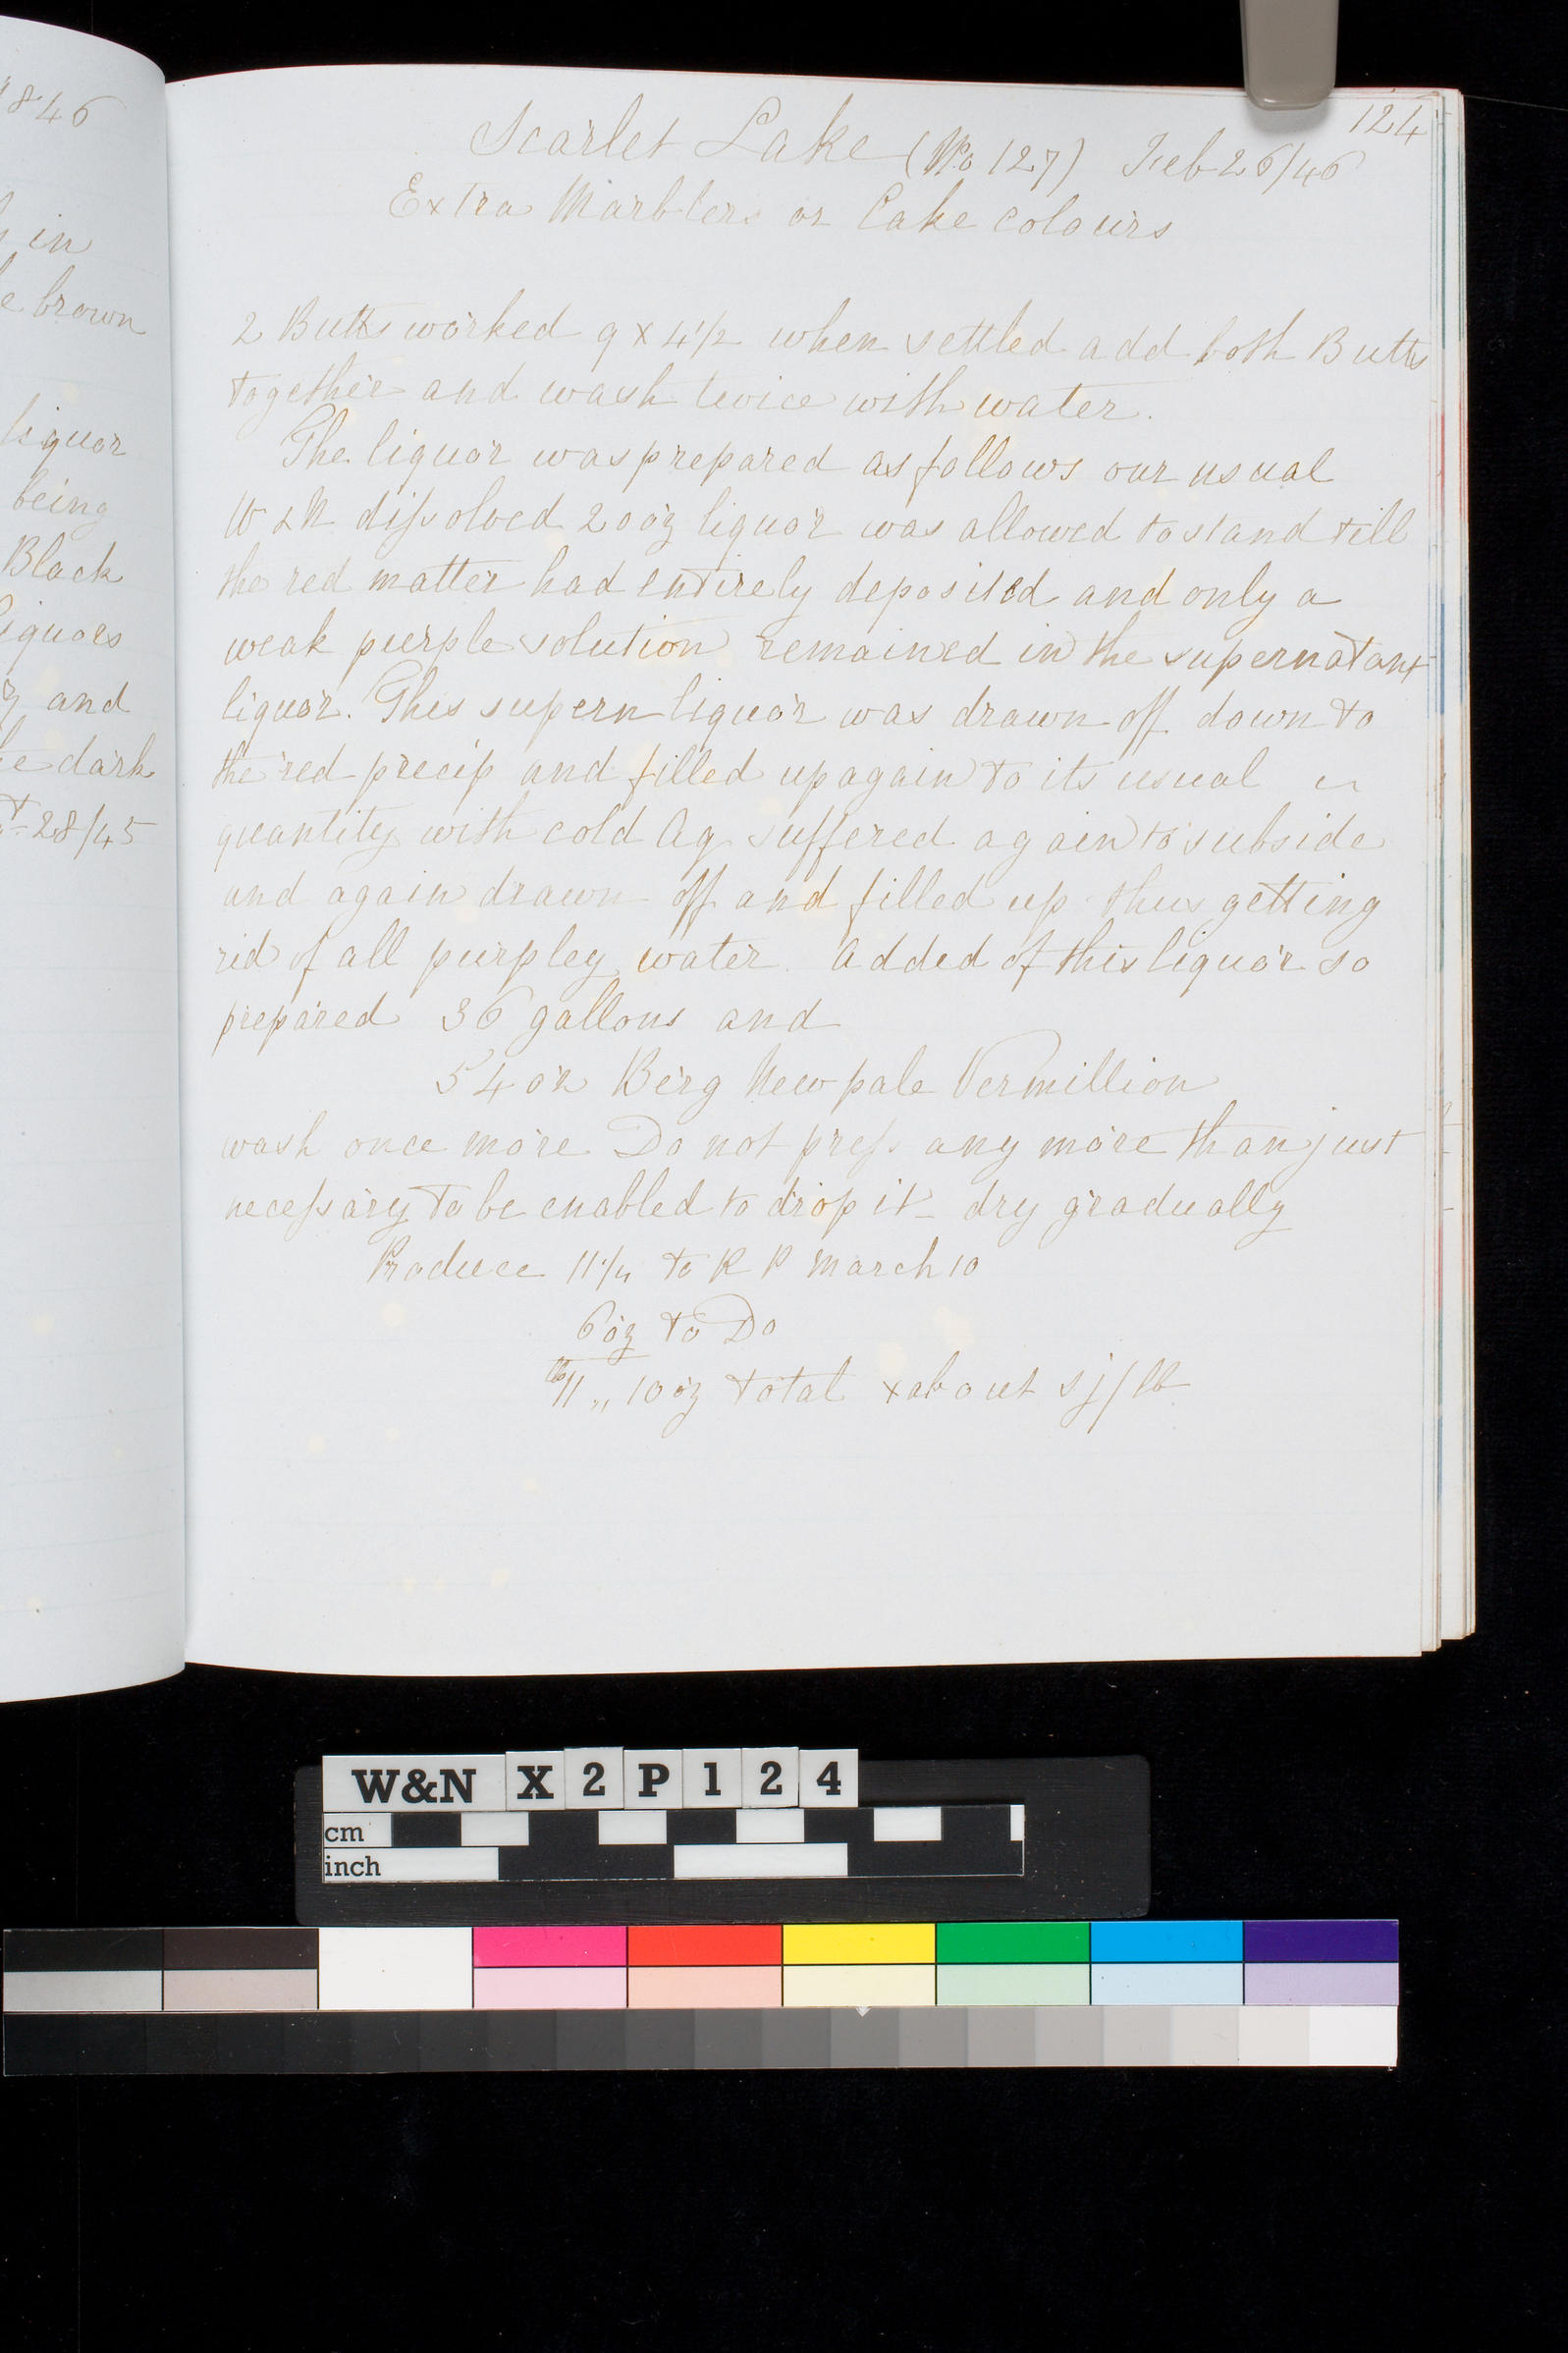 846
in
e brown
liquor
being
Black
liquors
and
dark
28/45
124
Scarlet Lake (No 127) Feb 26/46
Extra Marblers or Cake colours
2 Butts worked 9 x 4 1/2 when settled add both Butts
together and wash twice with water.
The liquor was prepared as follows our usual
W & N dissolved 20 oz liquor was allowed to stand till
the red matter had entirely deposited and only a
weak purple solution remained in the supernatant
liquor. This supern liquor was drawn off down to
the red precip and filled up again to its usual
quantity with cold Aq suffered again to subside
and again drawn off and filled up thus getting
rid of all purpley water. Added of this liquor so
prepared 36 gallons and
54 oz Berg New pale Vermillion
wash once more Do not press any more than just
necessary to be enabled to drop it - dry gradually
Produce 11 1/4 to R P March 10
6 oz to Do
lb 11 " 10 oz total x about sj/lb
W&N X 2 P 1 2 4
cm
inch